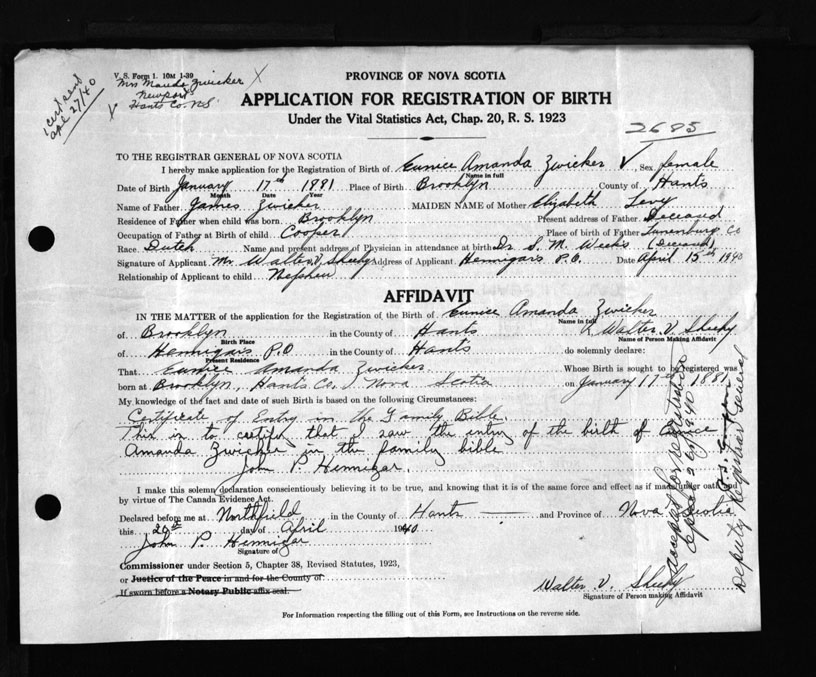 V. S. Form 1. 10M 1-39
Mrs Maude Zwicker X
Newport
Hants Co. N.S.
X
1 cert send
apl 27/40
PROVINCE OF NOVA SCOTIA
APPLICATION FOR REGISTRATION OF BIRTH
Under the Vital Statistics Act, Chap. 20, R. S. 1923
2685
TO THE REGISTRAR GENERAL OF NOVA SCOTIA
I hereby make application for the Registration of Birth of Eunice Amanda Zwicker Sex female
Name in full
Date of Birth January 17th 1881 Place of Birth Brooklyn County of Hants
Month Date Year
Name of Father James Zwicker MAIDEN NAME of Mother Elizabeth Levy
Residence of Father when child was born Brooklyn Present address of Father Deceased
Occupation of Father at Birth of child Cooper Place of birth of Father Lunenburg Co
Race Dutch Name and present address of Physician in attendance at birth Dr. S. M. Weeks (Deceased)
Signature of Applicant Mr Walter V Sheehy Address of Applicant Hennigars P.O. Date April 15th 1940
Relationship of Applicant to child Nephew
AFFIDAVIT
IN THE MATTER of the application for the Registration of the Birth of Eunice Amanda Zwicker
Name in full
of Brooklyn in the County of Hants I, Walter V. Sheehy
Birth Place Name of Person Making Affidavit
of Hennigars P.O in the County of Hants do solemnly declare:
Present Residence
That Eunice Amanda Zwicker Whose Birth is sought to be registered was
born at Brooklyn, Hants Co., Nova Scotia on January 17th 1881
My knowledge of the fact and date of such Birth is based on the following Circumstances:
Certificate of Entry in the Family Bible.
This is to certify that I saw the entry of the birth of Eunice
Amanda Zwicker in the family bible
John P. Hennigar.
I make this solemn declaration conscientiously believing it to be true, and knowing that it is of the same force and effect as if made under oath and
by virtue of The Canada Evidence Act.
Declared before me at Northfield in the County of Hants and Province of Nova Scotia
this 20th day of April 1940
John P. Hennigar
Signature of
Commissioner under Section 5, Chapter 38, Revised Statutes, 1923,
or Justice of the Peace in and for the County of
If sworn before a Notary Public affix seal.
Walter V. Sheehy
Signature of Person making Affidavit
For Information respecting the filling out of this Form, see Instructions on the reverse side.
Accepted for registration
Deputy Registrar General